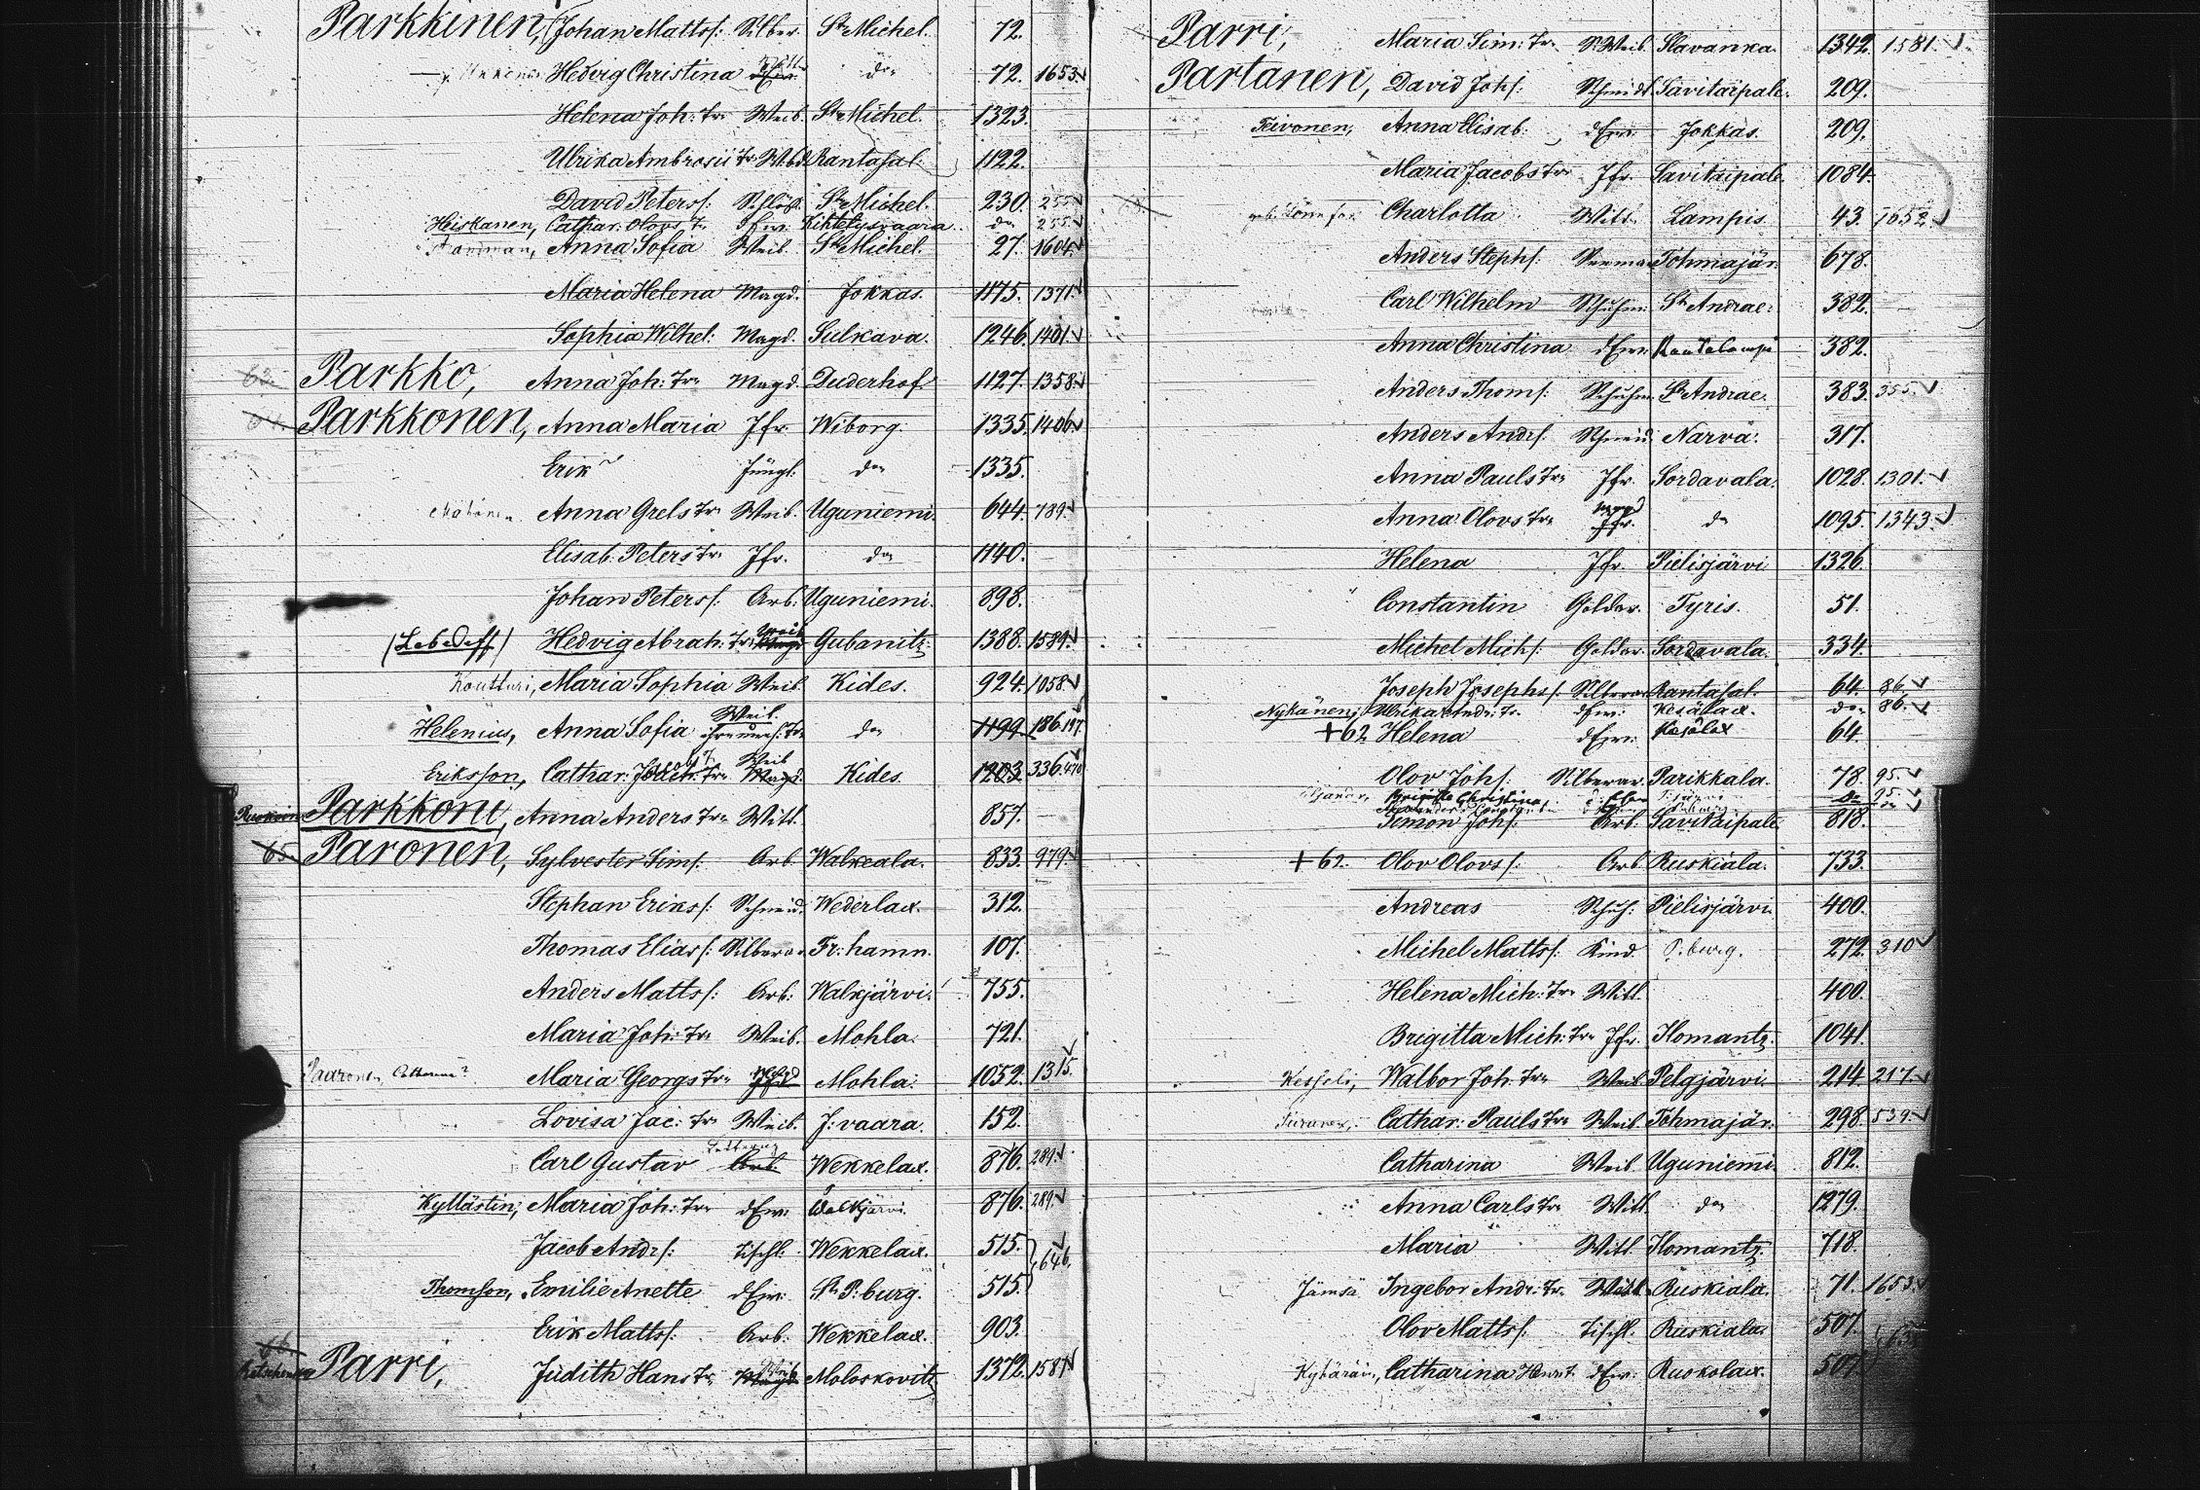 Parkkinen, Johan Mattss: Silber. St Michel. 72.
Hedvig Christina do 72. 1653
Helena Joh: Tr. Weib. St Michel. 1323.
Ulrika Ambrosii Tr. Rantasal. 1122.
David Peterss: St Michel. 230. 255
Heiskanen, Cathar. Olovs Tr. dEw. Kihtelysvaara do 255.
Anna Sofia Weib. St Michel. 27. 1604
Maria Helena Magd. Jokkas. 1175. 1371
Sophia Wilhel: Magd. Sulkava. 1246. 1401
Parkko, Anna Joh: Tr. Magd. Duderhof 1127. 1358
Parkkonen, Anna Maria Jfr. Wiborg. 1335. 1406
Erik Jüngl. do 1335.
Anna Grels Tr. Weib. Uguniemi. 644. 789
Elisab: Peters Tr. Jfr. do 1140.
Johan Peterss: Arb: Uguniemi. 898.
(Lebedeff) Hedvig Abrah: Tr. Weib Gubanitz. 1388. 1589
Koutturi, Maria Sophia Weib. Kides. 924. 1058
Helenius, Anna Sofia Weib. do 1199. 186. 197
Eriksson, Cathar: Tr. Weib Magd. Kides. 1203. 336. 470
Parkkoni, Anna Anders Tr. Witt. 857.
65. Paronen, Sylvester Sims: Arb. Walkeala. 833. 979
Stephan Erikss: Schneid. Wederlax. 312.
Thomas Eliass: Silberar. Fr: hamn. 107.
Anders Mattss: Arb: Walkjärvi. 755.
Maria Joh: Tr. Weib. Mohla. 721.
Paaronen, Catharina? Maria Georgs Tr. Mohla: 1052. 1315
Lovisa Jac: Tr. Weib. J: vaara. 152.
Carl Gustav Arb. Wekkelax. 876. 289
Kyllästin, Maria Joh: Tr. dEw: Walkjärvi. 876. 289
Jacob Ands: Tischl: Wekkelax. 515. 646.
Thomson, Emilie Anette dEw: St P: burg. 515.
Erik Mattss: Arb: Wekkelax. 903.
66.
Parri, Judith Hans Tr. Weib Moloskovitz 1372. 1587
Parri, Maria Sim: Tr. Weib. Slavanka. 1342. 1581.
Partanen, David Johs: Schmidt Savitaipale. 209.
Teivonen, Anna Elisab: dEw: Jokkas. 209.
Maria Jacobs Tr. Jfr. Savitaipale. 1084.
Charlotta Witt. Lampis. 43. 1652
Anders Stephs: Tohmajär. 678.
Carl Wilhelm Schuhm. St Andrae: 382.
Anna Christina dEw: Rautalampi 382.
Anders Thoms: Schuhm St Andrae. 383. 355.
Anders Ands: Schneid. Narva. 317.
Anna Pauls Tr. Jfr. Sordavala. 1028. 1301.
Anna Olovs Tr. Magd Jfr. do 1095. 1343.
Helena Jfr. Pielisjärvi 1326.
Constantin Goldar. Tyris. 51.
Michel Michs: Goldar. Sordavala. 334.
Joseph Josephss: Silberar. Rantasal. 64. 86.
Nykänen, Ulrika Andr: Tr. dEw: Kesälax. do 86.
+62 Helena dEw: Kesälax 64.
Olov Johs: Silberar. Parikkala. 78. 95.
Brigitta Christina
Simon Johs: Arb: Savitaipale 818.
+62. Olov Olovss: Arb Ruskiala. 733.
Andreas Schuh: Pielisjärvi 400.
Michel Mattss: Kind. P. burg. 272. 310
Helena Mich: Tr. Witt. 400.
Brigitta Mich: Tr. Jfr. Ilomantz. 1041.
Kesseli, Walbor Joh: Tr. Weib Pelgjärvi. 214. 217.
Cathar: Pauls Tr. Weib Tohmajär. 298. 539.
Catharina Weib. Uguniemi. 812.
Anna Carls Tr. Witt. do 1279.
Maria Witt. Ilomantz. 718.
Jämsä Ingebor Andr: Tr. Ruskiala. 71. 1653.
Olov Mattss: Tischl. Ruskiala. 507.
Catharina dEw: Ruokolax. 507.